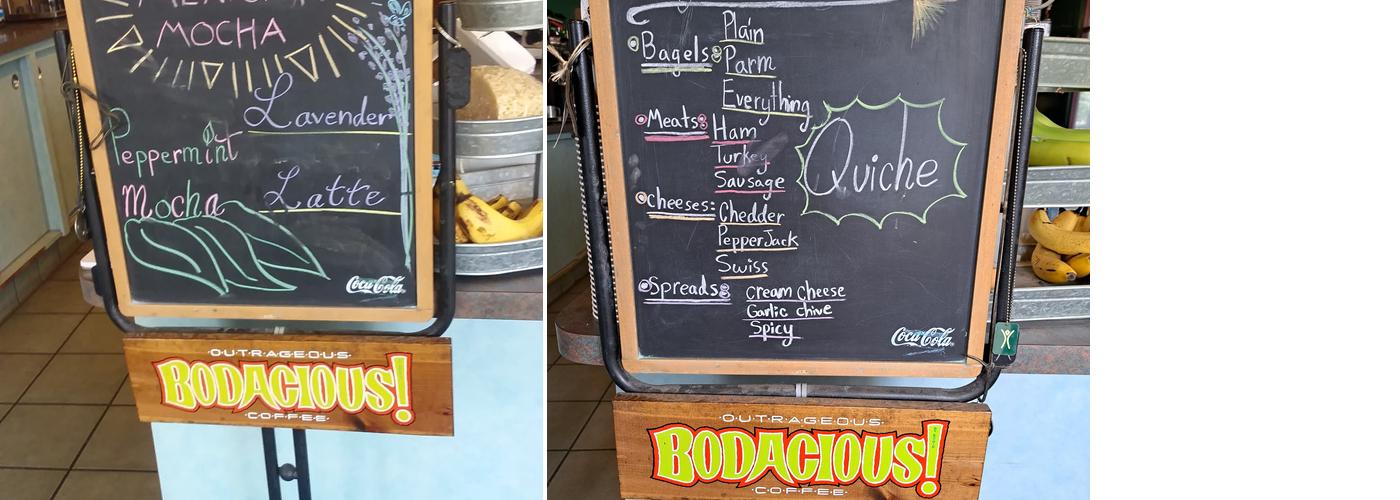 MOCHA
Lavender
Peppermint
Latte
Mocha
Coca-Cola
OUTRAGEOUS
BODACIOUS!
COFFEE
Bagels:
Plain
Parm
Everything
Meats:
Ham
Turkey
Sausage
Quiche
Cheeses:
Chedder
PepperJack
Swiss
Spreads:
Cream Cheese
Garlic chive
Spicy
Coca-Cola
OUTRAGEOUS
BODACIOUS!
COFFEE